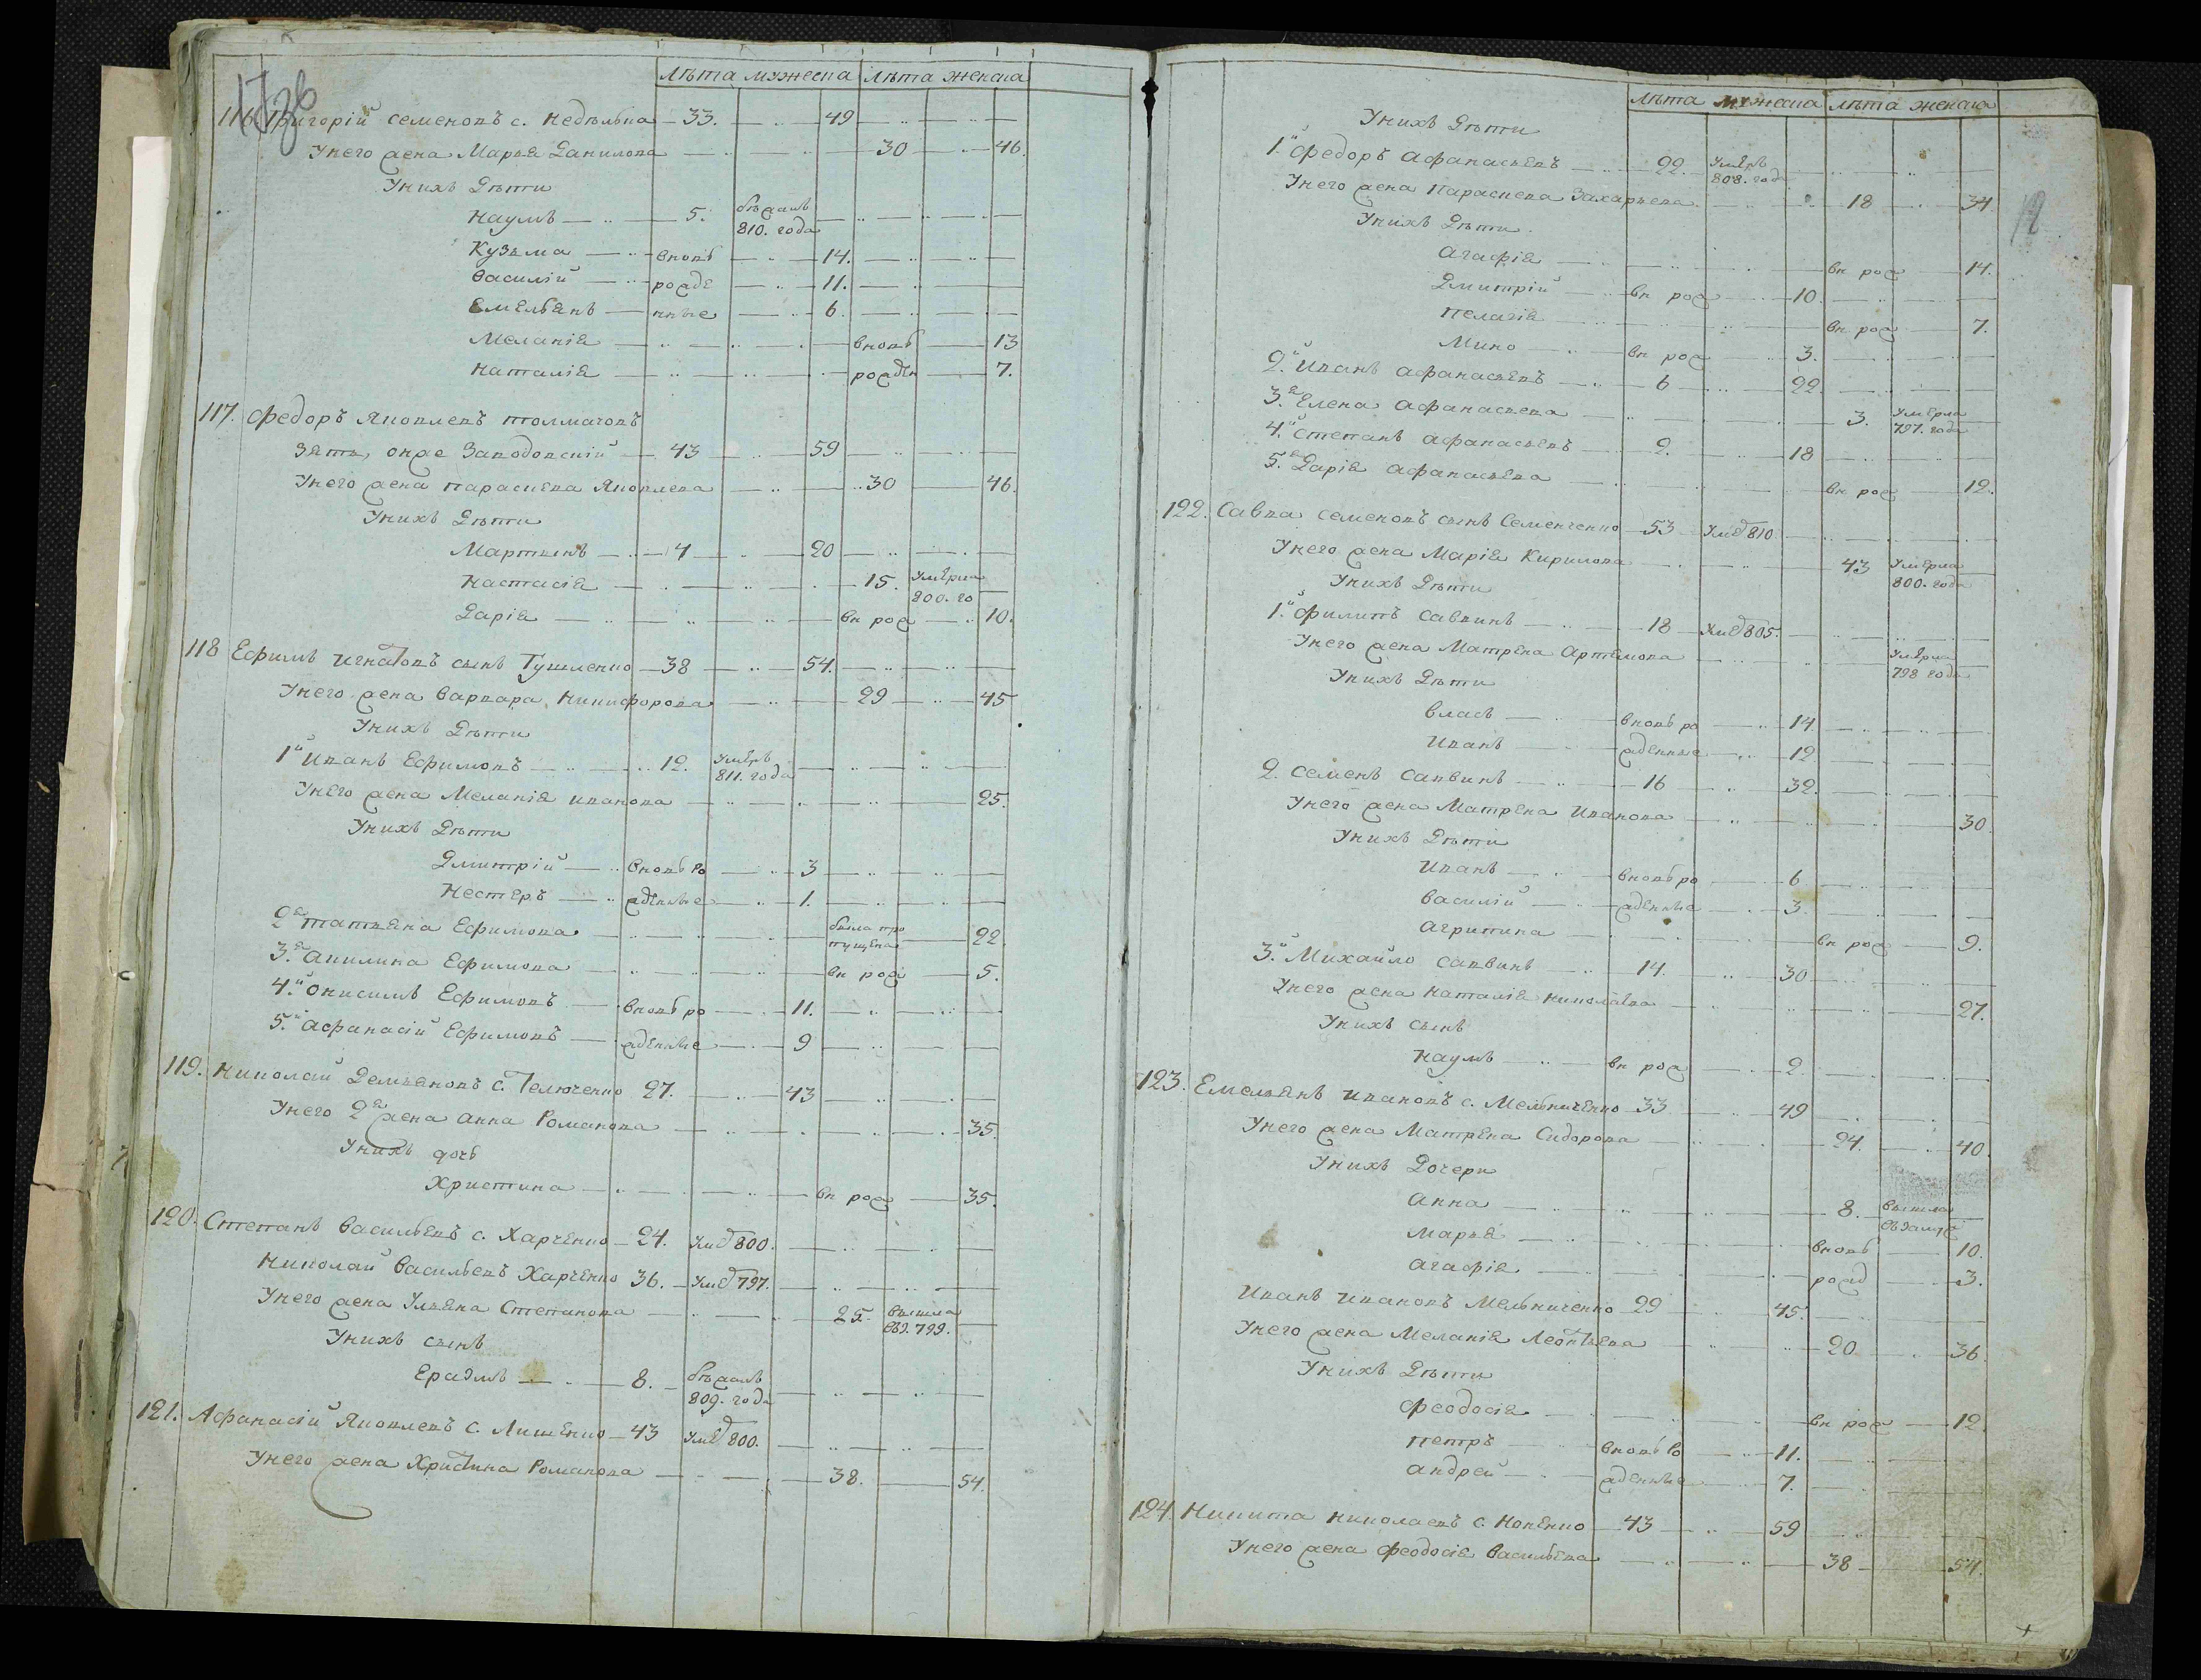 Лѣта мужеска Лѣта женска
116. Григорій Семеновъ с. Недѣлька — 33. — 49
У него жена Марья Данилова — 30 — 46.
У нихъ Дѣти
Наумъ — 5. бѣжалъ 810. года
Кузьма — вновь — 14.
Василій — рожде — 11.
Емельянъ — нные — 6.
Меланія — вновь — 13
Наталія — рожден — 7.
117. Федоръ Яковлевъ Толмачовъ
зять, онже Заводовскій — 43 — 59
У него жена Параскева Яковлева — 30 — 46.
У нихъ Дѣти
Мартынъ — 4 — 20
Настасія — 15. Умерла 800. го
Дарія — вн рож — 10.
118 Ефимъ Игнатовъ сынъ Тушленко — 38 — 54.
У него жена Варвара Никифорова — 29 — 45
У нихъ Дѣти
1й Иванъ Ефимовъ — 12. Умеръ 811. года
У него жена Меланія Иванова — 25.
У нихъ Дѣти
Дмитрій — вновь ро — 3
Нестеръ — жденные — 1.
2я Татьяна Ефимова — была пропущена — 22
3я Акилина Ефимова — вн рож — 5.
4й Онисимъ Ефимовъ — вновь ро — 11.
5й Афанасій Ефимовъ — жденные — 9
119. Николай Демьяновъ с. Телюченко 27. — 43
У него 2я жена Анна Романова — 35.
У нихъ дочь
Христина — вн рож — 35.
120. Степанъ Васильевъ с. Харченко — 24. Умер 800.
Николай Васильевъ Харченко 36. — Умер 797.
У него жена Ульяна Степанова — 25. вышла въз. 799.
У нихъ сынъ
Ерадмъ — 8. — бѣжалъ 809. года
121. Афанасій Яковлевъ с. Лишенко — 43 Умер 800.
У него жена Христина Романова — 38. — 54.
Лѣта мужеска Лѣта женска
У нихъ Дѣти
1й Федоръ Афанасьевъ — 22. Умеръ 808. года
У него жена Параскева Захарьева — 18 — 34
У нихъ Дѣти
Агафія — вн рож — 14.
Дмитрій — вн рож — 10.
Пелагія — вн рож — 7.
Мино — вн рож — 3.
2й Иванъ Афанасьевъ — 6 — 22.
3я Елена Афанасьева — 3. Умерла 797. года
4й Степанъ Афанасьевъ — 2. — 18
5я Дарія Афанасьева — вн рож — 12.
122. Савва Семеновъ сынъ Семенченко — 53 — Умер 810
У него жена Марія Кирилова — 43 Умерла 800. года
У нихъ Дѣти
1й Филипъ Саввинъ — 18 — Умер 805.
У него жена Матрена Артемова — Умерла 798 года
У нихъ Дѣти
Власъ — вновь ро — 14.
Иванъ — жденные — 12
2. Семенъ Саввинъ — 16 — 32.
У него жена Матрена Иванова — 30.
У нихъ Дѣти
Иванъ — вновь ро — 6
Василій — жденные — 3.
Агрипина — вн рож — 9.
3й Михайло Саввинъ — 14. — 30
У него жена Наталія Николаева — 27.
У нихъ сынъ
Наумъ — вн рож — 2.
123. Емельянъ Ивановъ с. Мельниченко 33 — 49
У него жена Матрена Сидорова — 24. — 40
У нихъ Дочери
Анна — 8. вышла въ замуж
Марья — вновь — 10.
Агафія — рожд — 3.
Иванъ Ивановъ Мельниченко — 29 — 45.
У него жена Меланія Леонтьева — 20 — 36
У нихъ Дѣти
Феодосія — вн рож — 12.
Петръ — вновь ро — 11.
Андрей — жденные — 7.
124. Никита Николаевъ с. Нопенко — 43 — 59
У него жена Феодосія Васильева — 38 — 54.